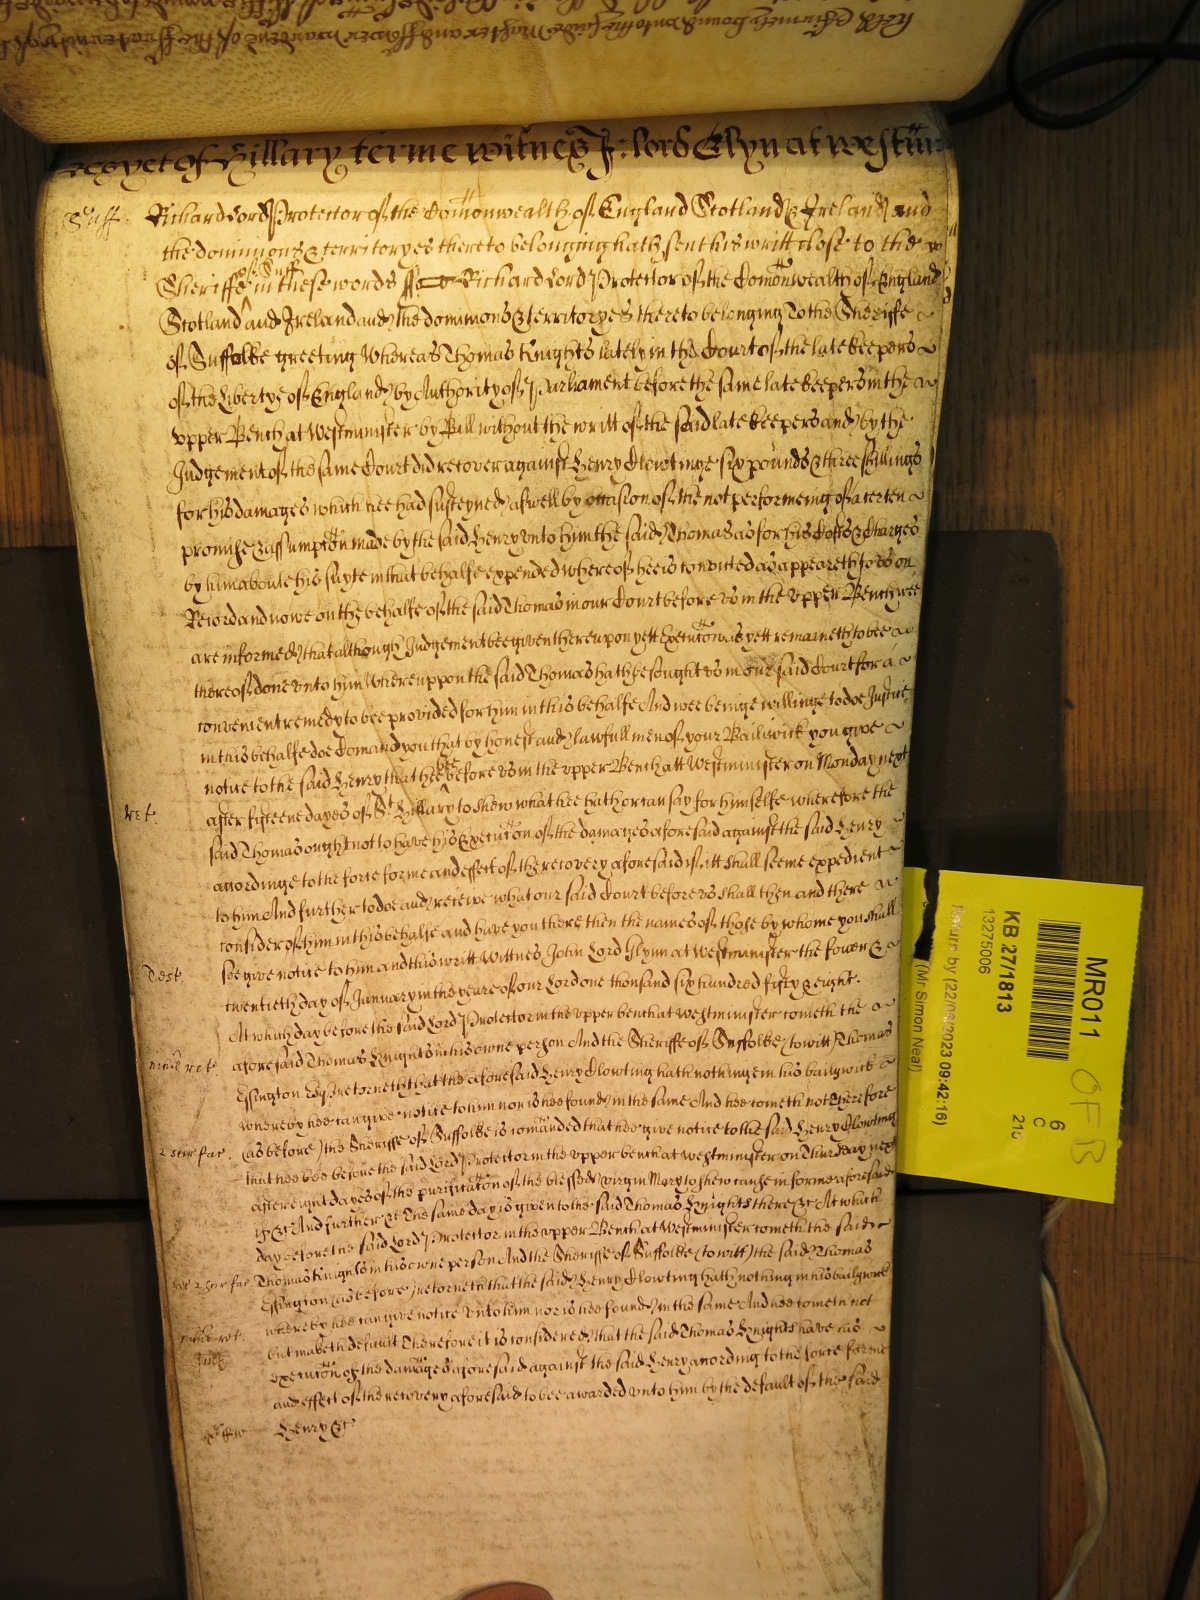 yet of Hillary terme witnes J: lord Glyn at westm
Suff. Richard Lord Protector of the Comonwealth of England Scotland & Ireland and
the dominions & territoryes thereto belonging hath sent his writt close to the
Sheriffe of Suff in these words ss Richard Lord Protector of the Comonwealth of England
Scotland and Ireland and the dominions & territoryes thereto belonging To the Sheriffe
of Suffolke greeting Whereas Thomas Knights lately in the Court of the late keepers
of the Libertye of England by Authority of Parliament before the same late keepers in the
upper Bench at Westminister by Bill without the writt of the said late keepers and by the
Judgement of the same Court did recover against Henry Clowtinge six pounds & three shillings
for his damages which hee had susteyned aswell by occasion of the not performeing of a certen
promise & assumption made by the said Henry unto him the said Thomas as for his Costs & Charges
by him aboute his suyte in that behalfe expended whereof hee is convicted as appeareth to us on
Record and nowe on the behalfe of the said Thomas in our Court before us in the upper Bench wee
are informed that although Judgement bee given thereupon yett Execution as yett remaineth to bee
thereof done unto him Whereuppon the said Thomas hath besought us in our said Court for a
convenient remedy to bee provided for him in this behalfe And wee beinge willinge to doe Justice
in this behalfe doe Comand you that by honest and lawfull men of your Bailiwick you give
notice to the said Henry that hee bee before us in the upper Bench att Westminister on Monday next
after fifteene dayes of St. Hillary to shew what hee hath or can say for himselfe wherefore the
Ret. said Thomas ought not to have his Execution of the damages aforesaid against the said Henry
accordinge to the force forme and effect of the recovery aforesaid if itt shall seeme expedient
to him And further to doe and receive what our said Court before us shall then and there
consider of him in this behalfe and have you there then the names of those by whome you shall
soe give notice to him and this writt Wittnes John Lord Glynn at Westminister the fower &
Test. twentieth day of January in the yeare of our Lord one thousand six hundred fifty & eight.
At which day before the said Lord Protector in the upper bench at westminister cometh the
aforesaid Thomas Knights in his owne person And the Sheriffe of Suffolke (to witt) Thomas
nichil ret. Essington Esq retorneth that the aforesaid Henry Clowting hath nothinge in his bailywick
whereby hee can give notice to him nor is hee found in the same And hee cometh not Therefore
2 scir fac. (as before) the Sheriffe of Suffolke is comanded that hee give notice to the said Henry Clowting
that hee bee before the said Lord Protector in the upper bench at westminister on Thursday next
after eight dayes of the purificacon of the blessed virgin Mary to shew cause in forme aforesaid
if &c And further &c The same day is given to the said Thomas Knights there &c At which
day before the said Lord Protector in the upper Bench at Westminister cometh the said
ret 2 scir fac. Thomas Knights in his owne person And the Sheriffe of Suffolke (to witt) the said Thomas
Essington (as before) retorneth that the said Henry Clowting hath nothing in his bailywick
whereby hee can give notice unto him nor is hee found in the same And hee cometh not
nichil ret. but maketh default Therefore it is considered that the said Thomas Knights have his
Judt execution of the damages aforesaid against the said Henry according to the force forme
and effect of the recovery aforesaid to bee awarded unto him by the default of the said
Henry &c
MR011
KB 27/1813
13275006
Return by (22/09/2023 09:42:16)
(Mr Simon Neal)
6
C
215
OF B